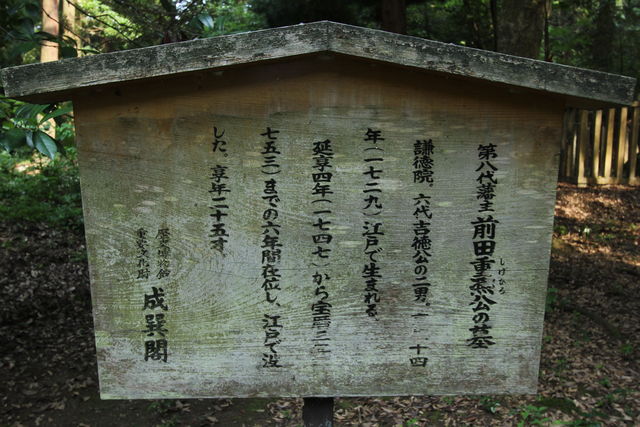 第八代藩主前田重熈公の墓
しげひろ
謙徳院。六代吉徳公の二男。一 十四
年（一七二九）江戸で生まれる。
延享四年（一七四七）から宝暦三
七五三）までの六年間在位し、江戸で没
した。享年二十五才
歴史博物館
重要文化財
成巽閣